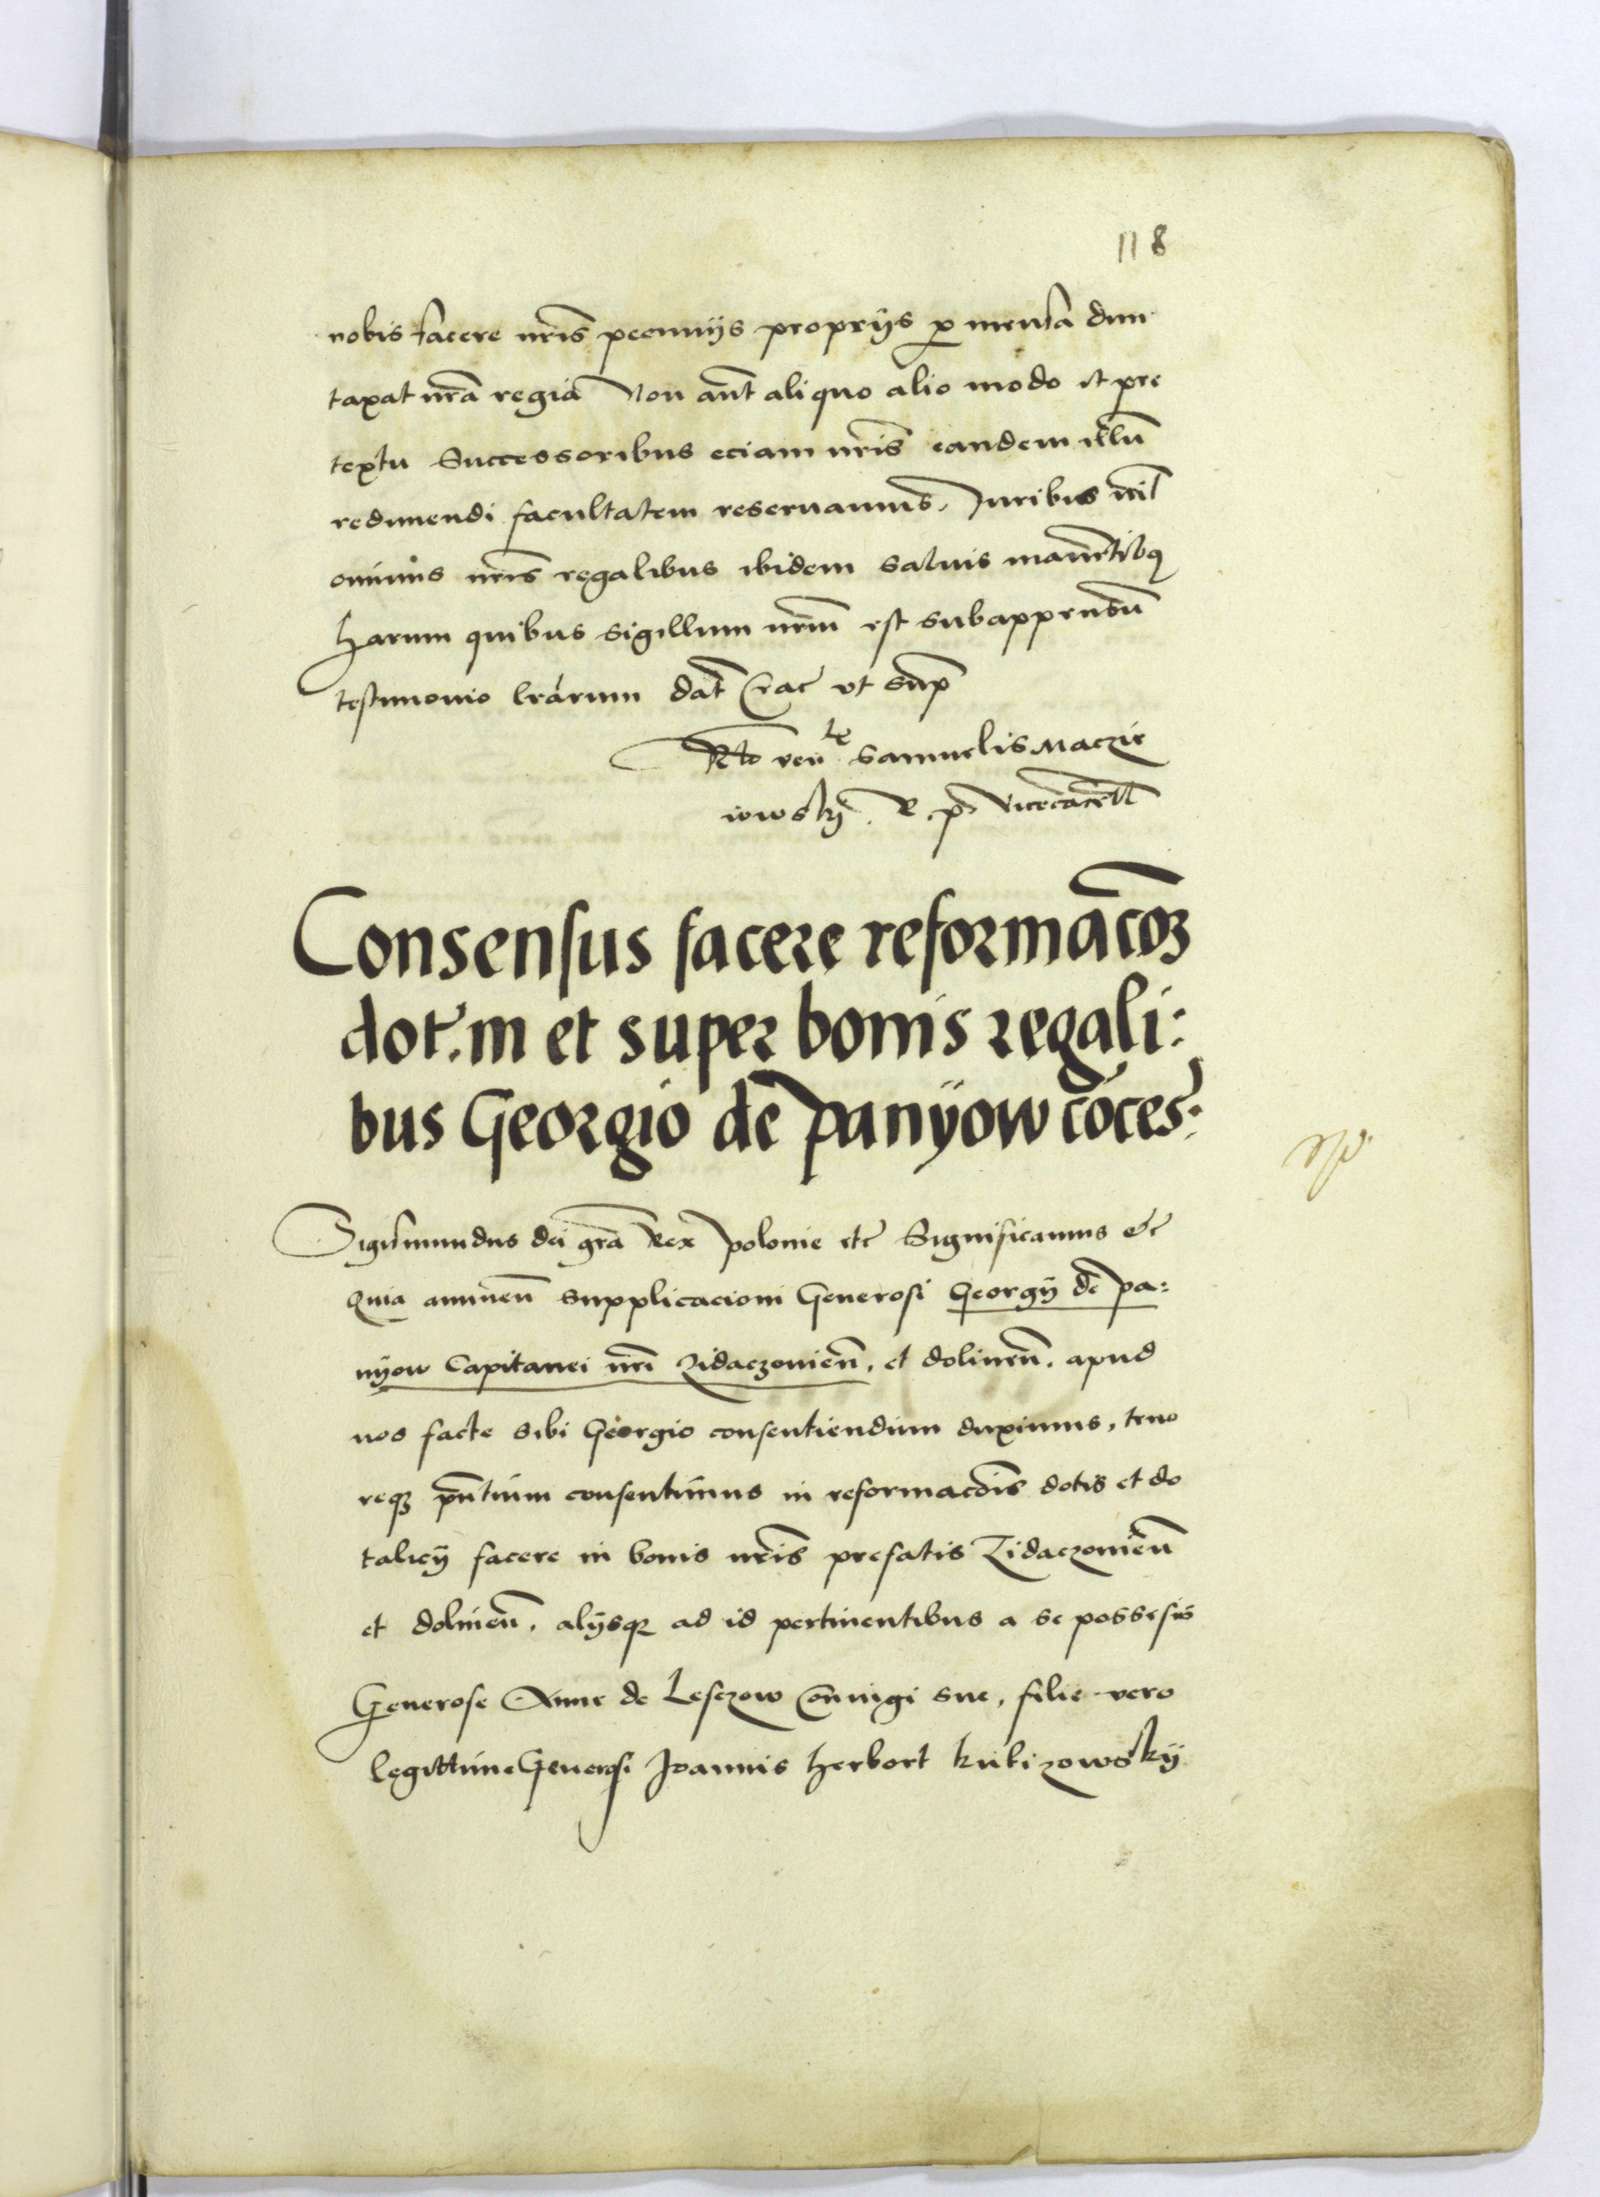 118
nobis facere nrīs pecunijs proprijs p mensā dun
taxat nrā regiā Non aūt aliquo alio modo et pre
textu Successoribus eciam nrīs eandem illū
redimendi facultatem reseruamus, Juribus
omnimīs nrīs regalibus ibidem saluis manentibꝫ
harum quibus sigillum nrm̄ est subappensū
testimonio lrārum dat̄ Crac̄ vt sup̄
Rto ven Samuelis Maczie
iowskij . R . p . vicecacell
Consensus facere reformac̄oꝫ
dot.m et super bonis regali:
bus Georgio de panÿow cōces:
Sigismundus dei grā Rex polonie etc Significamus etc
Quia annuen̄ supplicacioni Generosi Georgij de pa:
nÿow Capitanei nrī Zidaczouien̄, et dolinen̄, apud
nos facte sibi Georgio consentiendum duximus, teno
reqꝫ pn̄tium consentimus in reformac̄ois dotis et do
talicij facere in bonis nrīs prefatis Zidaczouien̄
et dolinen̄, alijsqꝫ ad id pertinentibus a se possessis
Generose Anne de Lesczow Coniugi sue, filie vero
legittime Generosi Joannis herbort